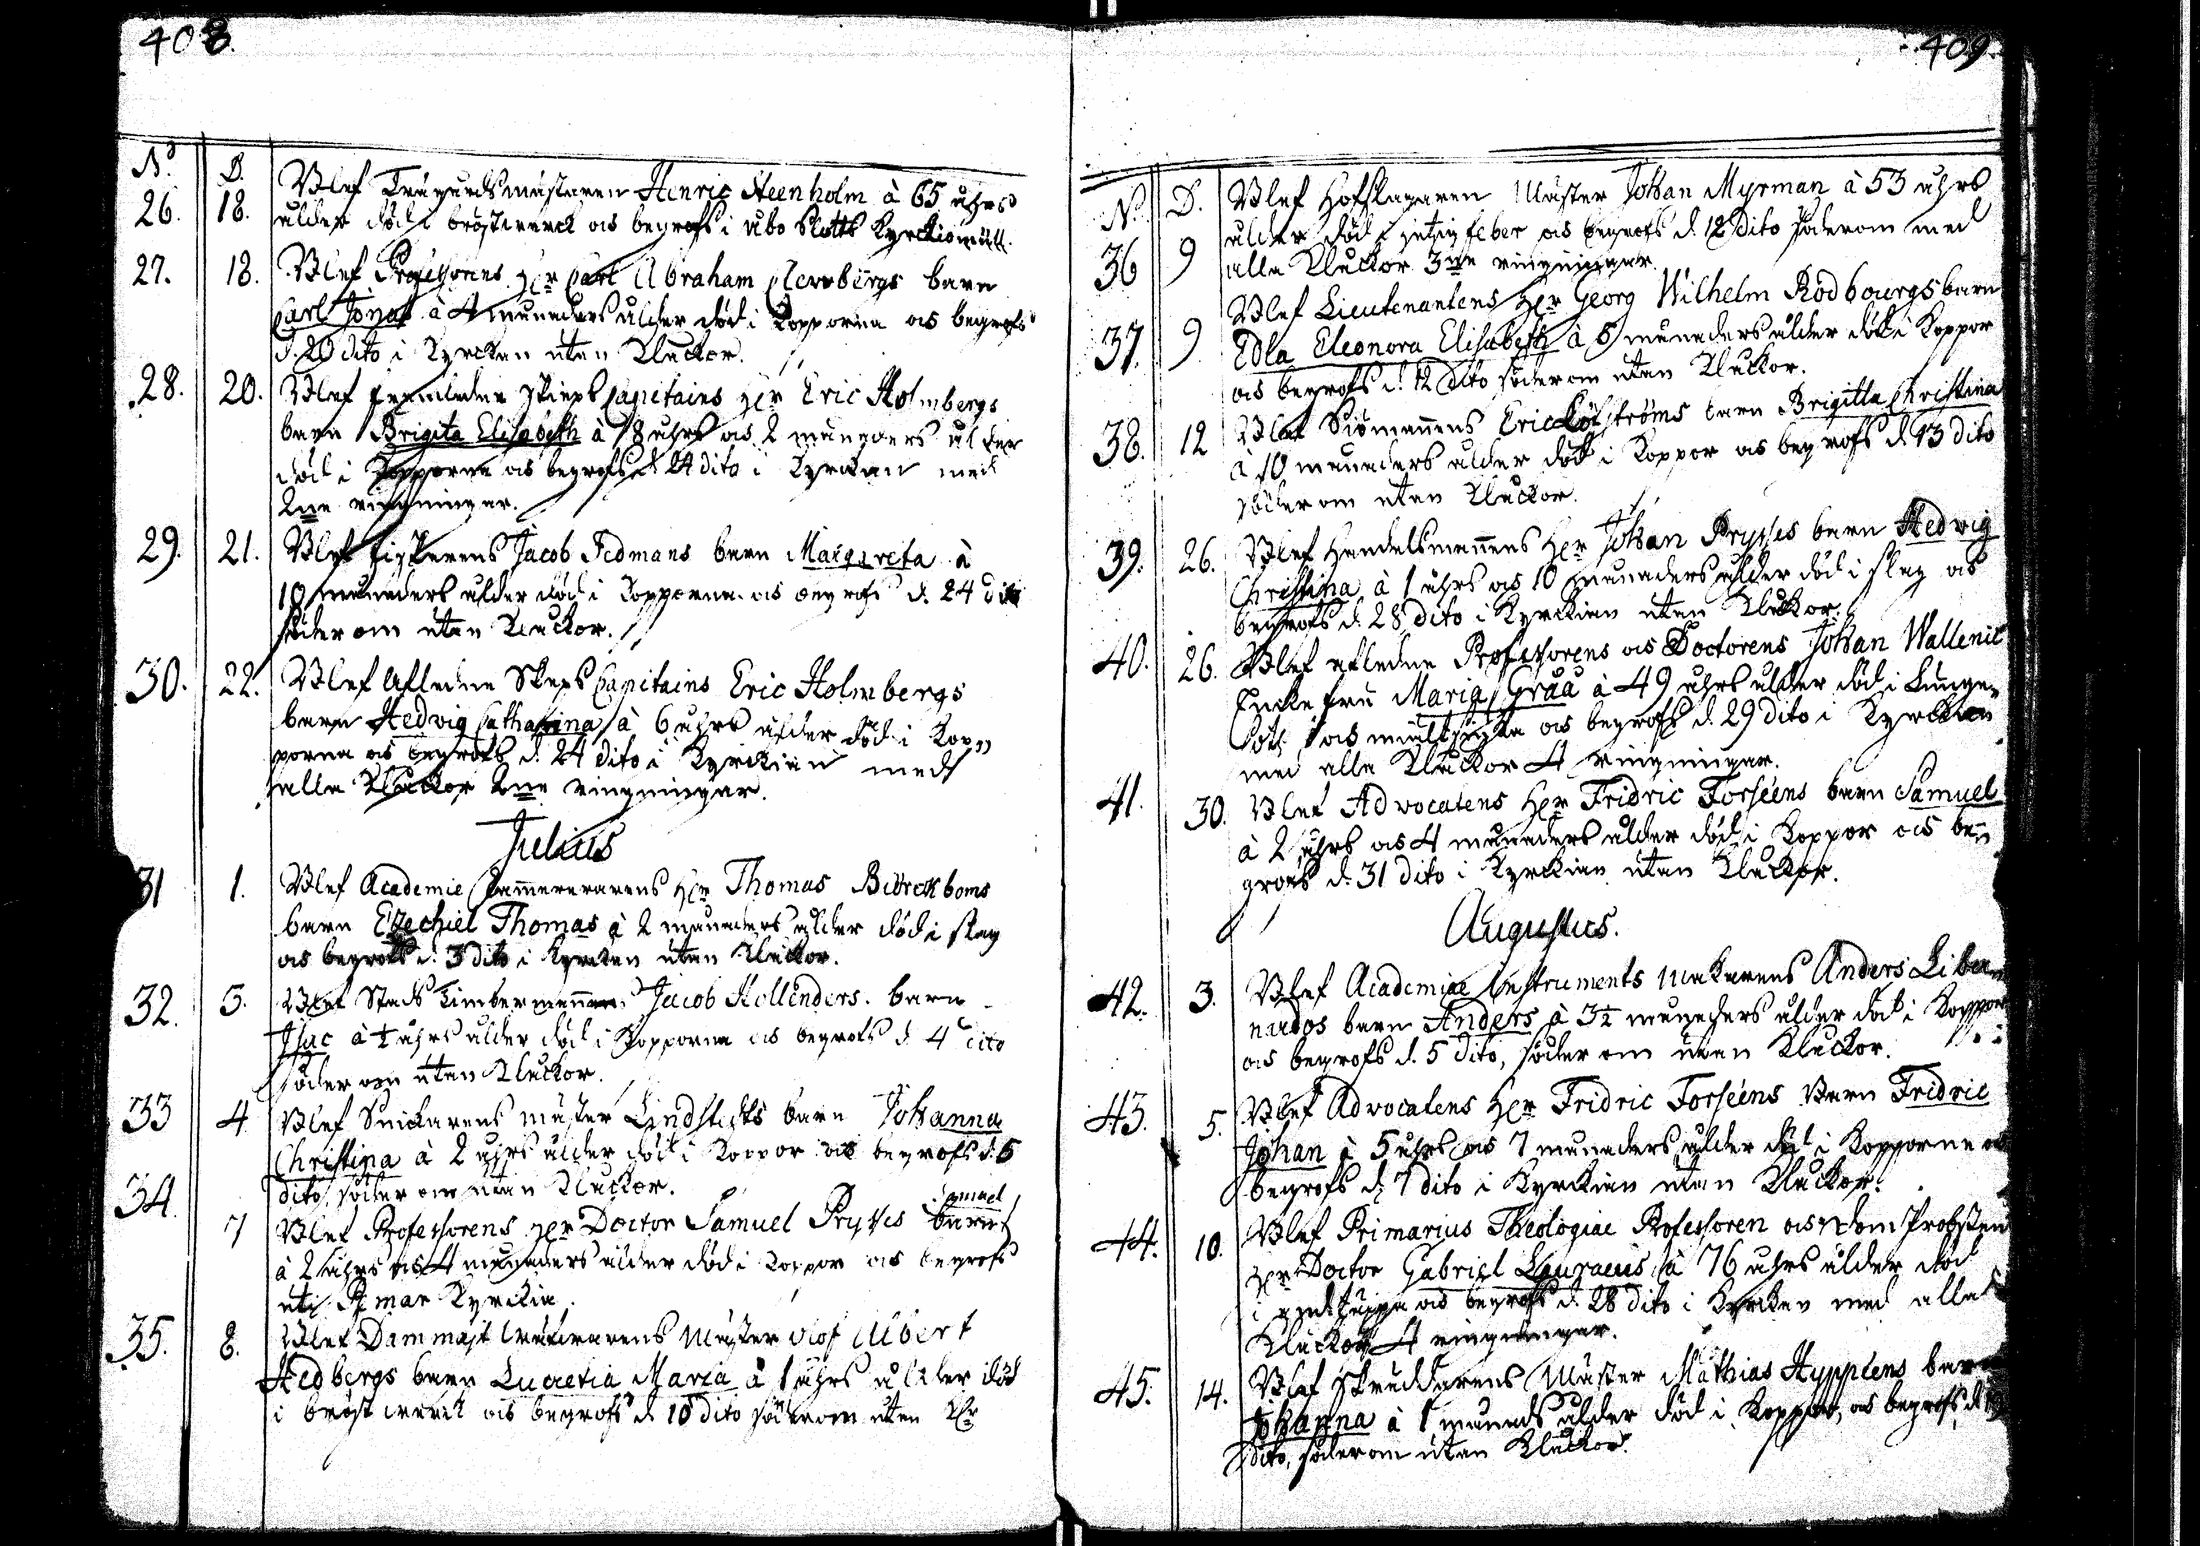 408.
No. D.
26. 18. Blef Trägårdsmästaren Henric Steenholm à 65 åhrs
ålder död i bröstwerck og begrofs i Åbo Slotts Kyrckiomull.
27. 18. Blef Professorens Her Carl Abraham Clewbergs barn
Carl Jonas à 4 månaders ålder död i Kopporna og begrofs
d. 20 dito i Kyrckan utan Kluckor.
28. 20. Blef framledne Skieps Capitains Her Eric Holmbergs
barn Brigita Elisabeth à 8 åhrs og 2 månaders ålder
död i Kopporna og begrofs d. 24 dito i Kyrckian med
2ne ringningar.
29. 21. Blef fiskarens Jacob Fedmans barn Margareta à
10 månaders ålder död i Kopporna og begrofs d. 24 dito
söder om utan Kluckor.
30. 22. Blef Afledne Skeps Capitains Eric Holmbergs
barn Hedvig Catharina à 6 åhrs ålder död i Kop„
porna og begrofs d. 24 dito i Kyrckian med
alla Kluckor 2ne ringningar.
Julius
31 1. Blef Academie Cammererarens Her Thomas Biörckboms
barn Ezechiel Thomas à 2 månaders ålder död i slag
og begrofs d. 3 dito i Kyrckan utan Kluckor.
32. 3. Blef Stads Timbermannen Jacob Hollenders barn
Isac à ½ åhrs ålder död i Kopporna og begrofs d. 4 dito
söder om utan Kluckor.
33 4 Blef Snickarens mäster Lindstedts barn Johanna
Christina à 2 åhrs ålder död i Koppor og begrofs d. 5
dito, söder om utan Kluckor.
34. 7 Blef Professorens Her Doctor Samuel Prysses barn Samuel
à 2 åhrs og 4 månaders ålder död i Koppor og begrofs
uti Pemar Kyrckia.
35. 8. Blef Dammast wäfwarens Mäster Olof Albert
Hedbergs barn Lucretia Maria à 1 åhrs ålder död
i bröst werck og begrofs d. 10 dito söder om utan Kl:r
409.
N. D.
36 9 Blef Hofslagaren Mäster Johan Myrman à 53 åhrs
ålder död i hetsig feber og begrofs d. 12 dito söderom med
alla Kluckor 3ne ringningar.
37. 9 Blef Lieutenantens Her Georg Wilhelm Rodbourgs barn
Edla Eleonora Elisabeth à 5 månaders ålder död i Koppor
og begrofs d. 12 dito söder om utan Kluckor.
38. 12 Blef Siömannens Eric Löfströms barn Brigitta Christina
à 10 månaders ålder död i Koppor og begrofs d. 13 dito
söder om utan Kluckor.
39. 26. Blef Handelsmannens Her Johan Prysses barn Hedvig
Christina à 1 åhrs og 10 månaders ålder död i slag og
begrofs d. 28 dito i Kyrckian utan Kluckor.
40. 26. Blef afledne Professorens og Doctorens Johan Wallenii
Encke fru Maria Graa à 49 åhrs ålder död i Lunge„
sot og mältsiuka og begrofs d. 29 dito i Kyrckian
med alla Kluckor 4 ringningar.
41. 30. Blef Advocatens Her Fridric Forséens barn Samuel
à 2 åhrs og 4 månaders ålder död i Koppor og be„
grofs d. 31 dito i Kyrckian utan Kluckor.
Augustus.
42. 3. Blef Academiae Instruments Makarens Anders Liber„
nardos barn Anders à 3½ månaders ålder död i Koppor
og begrofs d. 5 dito, söder om utan Kluckor.
43. 5. Blef Advocatens Her Fridric Forséens Barn Fridric
Johan à 5 åhrs og 7 månaders ålder död i Kopporne og
begrofs d. 7 dito i Kyrckian utan Kluckor.
44. 10. Blef Primarius Theologiae Professoren og Dom Probsten
Her Doctor Gabriel Lauraeus à 76 åhrs ålder död
i og begrofs d. 28 dito i Kyrckan med alla
Kluckor 4 ringningar.
45. 14. Blef Skräddarens Mäster Mathias Hyppiens barn
Johanna à 1 månads ålder död i Koppor, og begrofs d.
dito, söderom utan Kluckor.